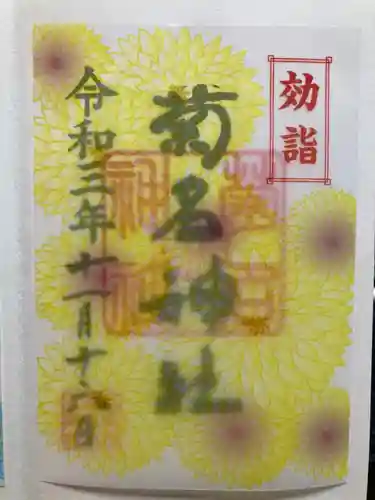 効詣
菊名神社
令和三年十一月十六日